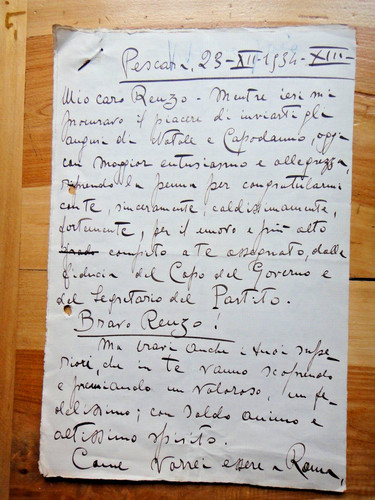 Pescara, 23-XII-1934-XIII-
Mio caro Renzo - Mentre ieri mi
procuravo il piacere di inviarti gli
auguri di Natale e Capodanno, oggi
con maggior entusiasmo e allegrezza,
riprendo la penna per congratularmi
con te, sinceramente, caldissimamente,
fortemente, per il nuovo e più alto
grado compito a te assegnato, dalla
fiducia del Capo del Governo e
del Segretario del Partito.
Bravo Renzo!
Ma bravi anche i tuoi supe
riori, che in te vanno scoprendo
e premiando un valoroso, un fe
delissimo; con saldo animo e
altissimo spirito.
Come vorrei essere a Roma,